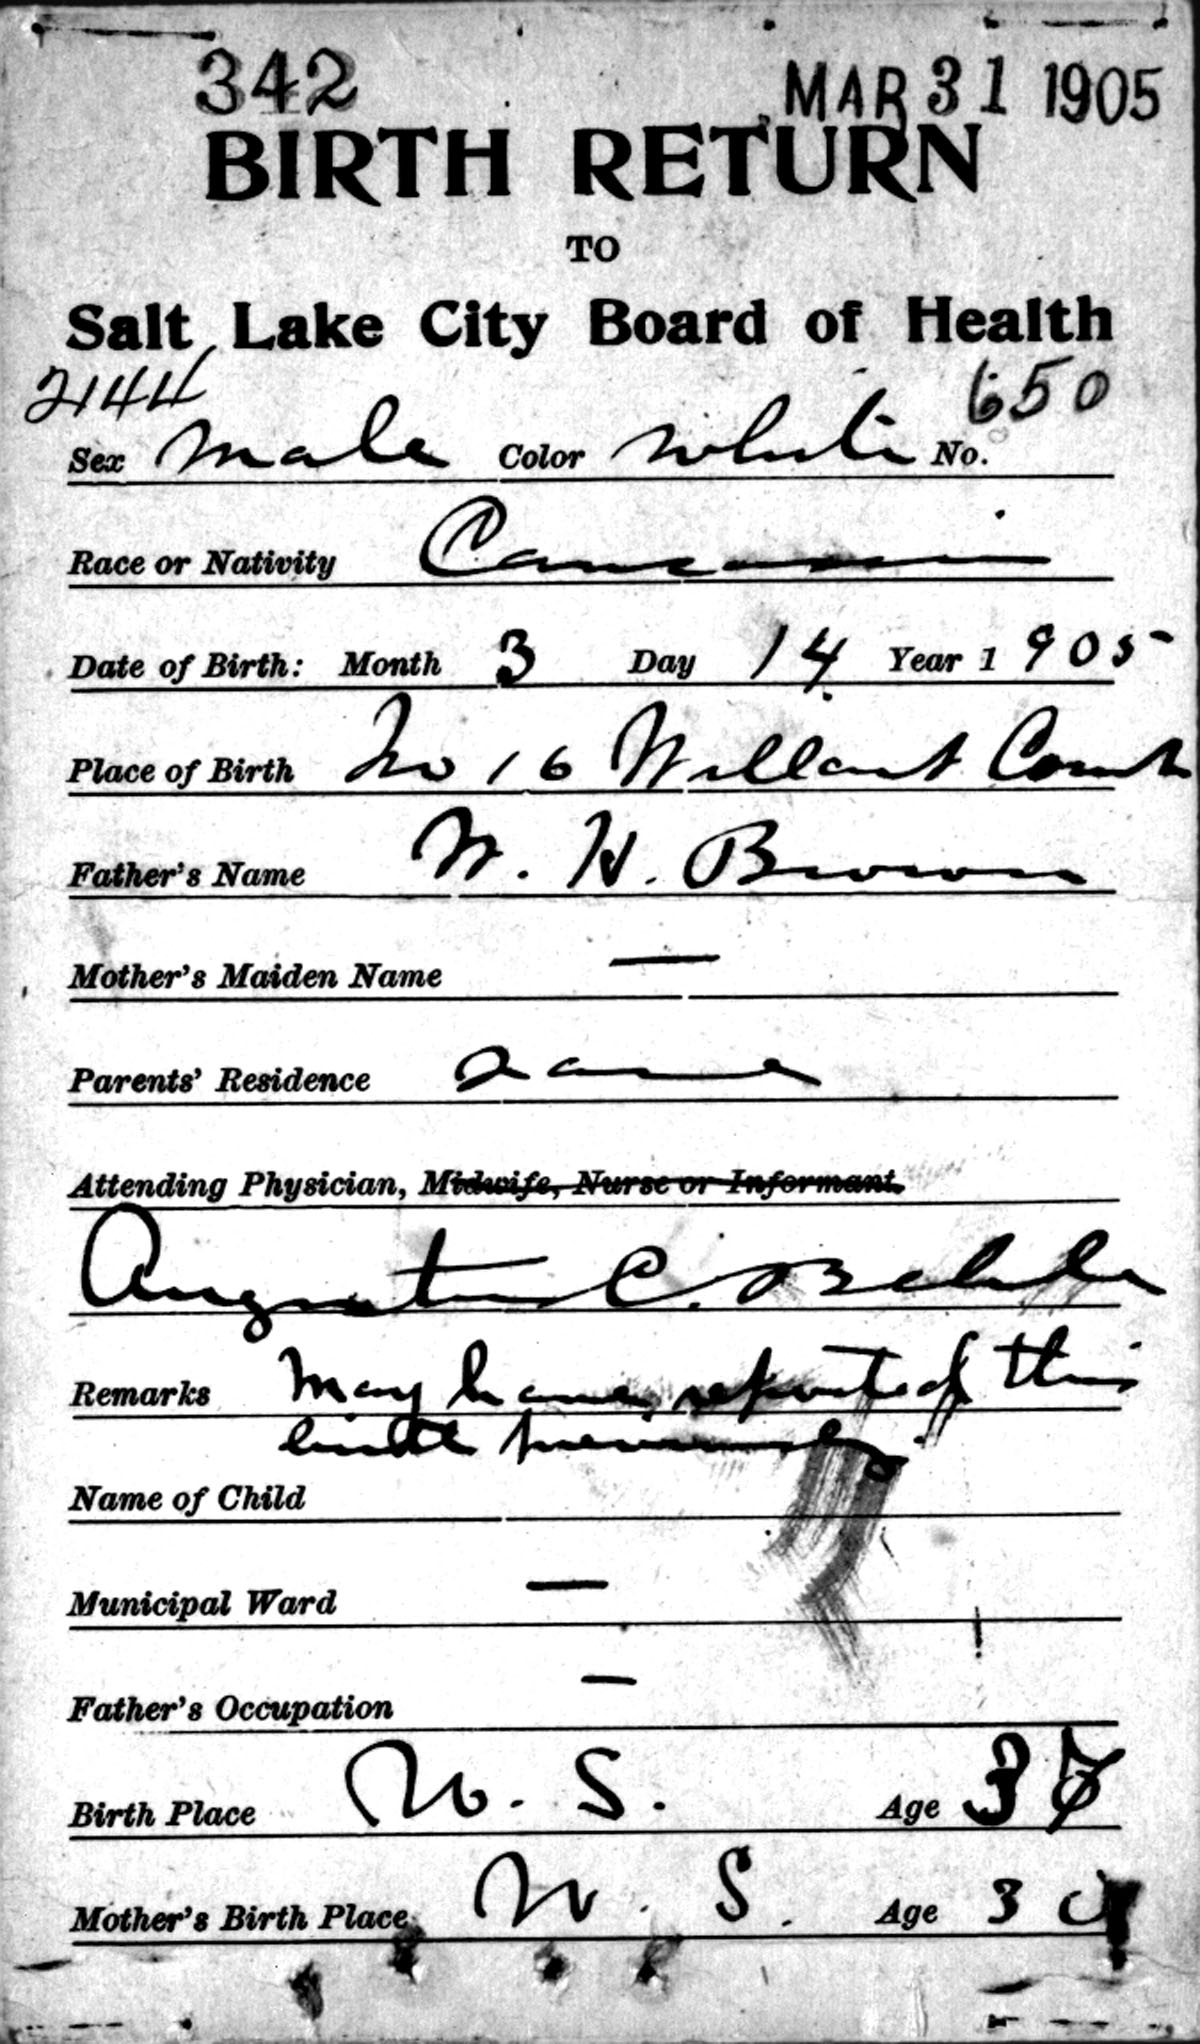 342 MAR 31 1905
BIRTH RETURN
TO
Salt Lake City Board of Health
2144 650
Sex Male Color White No.
Race or Nativity Caucasian
Date of Birth: Month 3 Day 14 Year 1 905
Place of Birth No 16 Court
Father's Name W. H. Brown
Mother's Maiden Name —
Parents' Residence Same
Attending Physician, Midwife, Nurse or Informant.
Augustus C. Behle
Remarks May have reported this
birth previously.
Name of Child
Municipal Ward —
Father's Occupation —
Birth Place U. S. Age 37
Mother's Birth Place U. S. Age 30